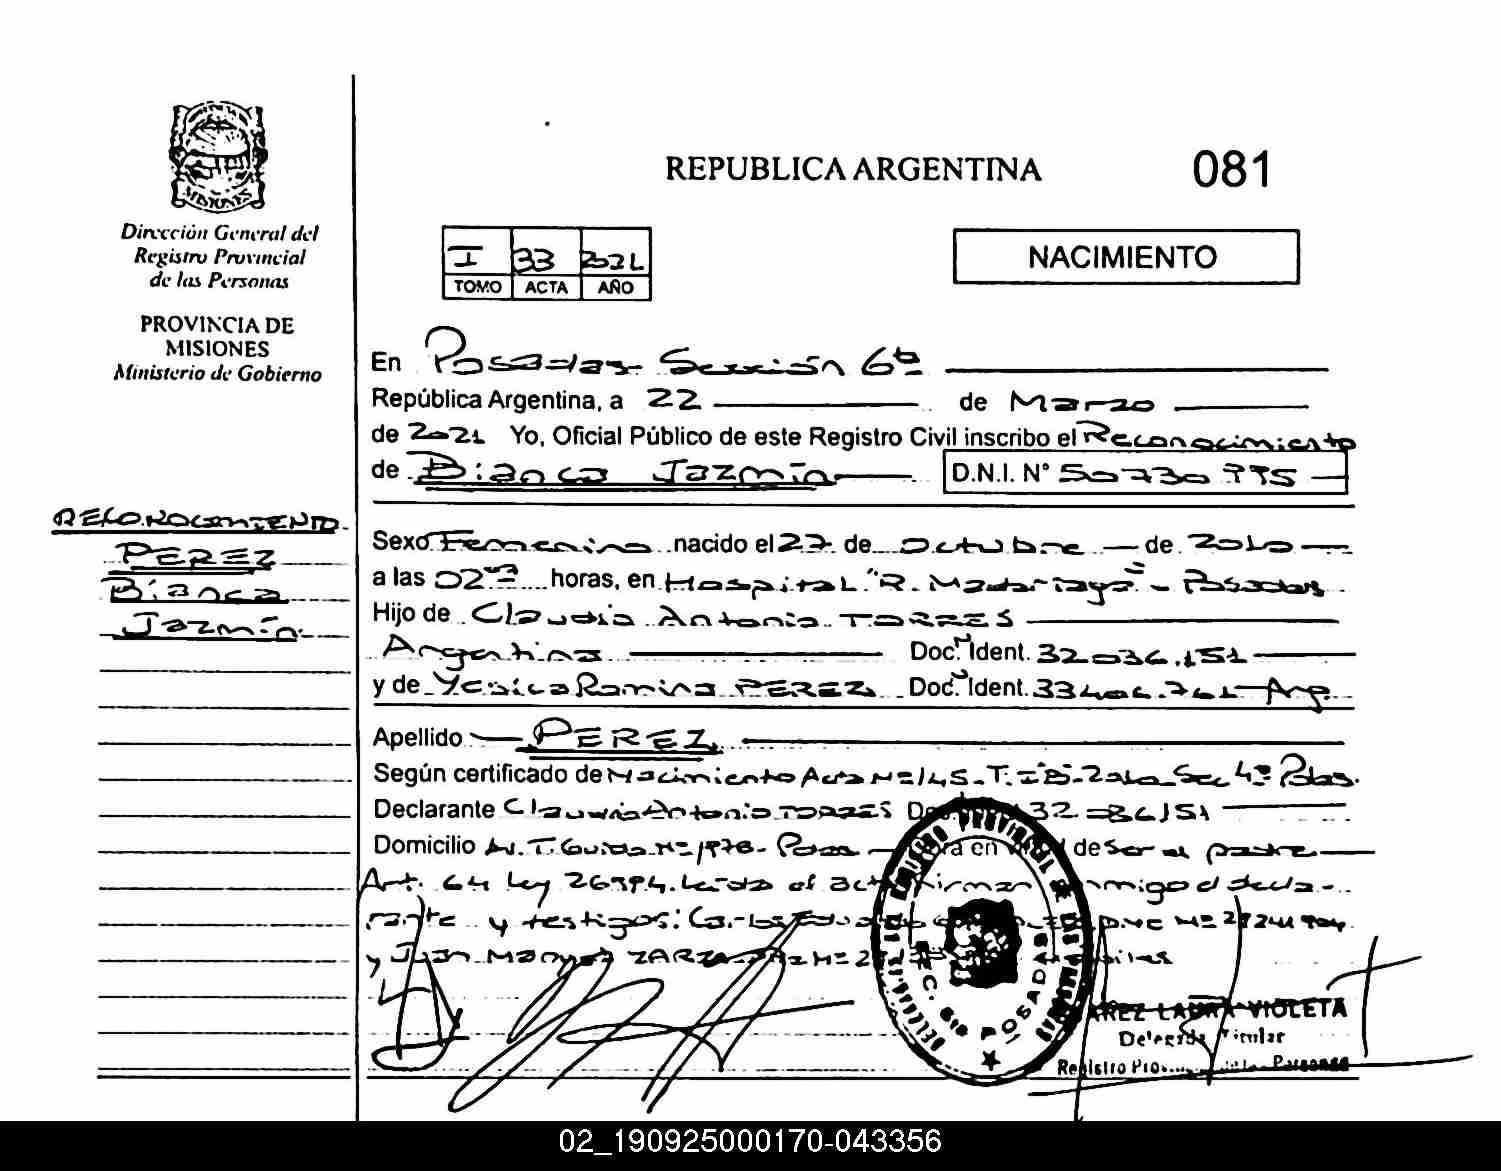 MISIONES
Dirección General del
Registro Provincial
de las Personas
PROVINCIA DE
MISIONES
Ministerio de Gobierno
REPUBLICA ARGENTINA 081
I 33 2021
TOMO ACTA AÑO
NACIMIENTO
En Posadas Sección 6ta
República Argentina, a 22 de Marzo
de 2021 Yo, Oficial Público de este Registro Civil inscribo el Reconocimiento
de Bianca Jazmín D.N.I. N° 50730995
RECONOCIMIENTO
PEREZ
Bianca
Jazmín
Sexo Femenino nacido el 27 de Octubre de 2010
a las 02 horas, en Hospital "R. Madariaga" - Posadas
Hijo de Claudio Antonio TORRES
Argentino Doc. Ident. 32.036.151
y de Yesica Romina PEREZ Doc. Ident. 33406.761 Arg.
Apellido PEREZ
Según certificado de Nacimiento Acta Nº 145 - T. 2010 Sec 4º Pdas.
Declarante Claudio Antonio TORRES 32.036151
Domicilio Av. T. Guido Nº 1978 - Pdas en de Ser el padre
Art. 64 Ley 26994. Leída el acta firman conmigo el decla-
rante y testigos: Carlos Eduardo DNI Nº
y Juan Manuel ZARZA
DELEGACION REGISTRO PROVINCIAL DE LAS PERSONAS
SEC. 6ta POSADAS
LAURA VIOLETA
Delegada Titular
Registro Provincial de las Personas
02_190925000170-043356